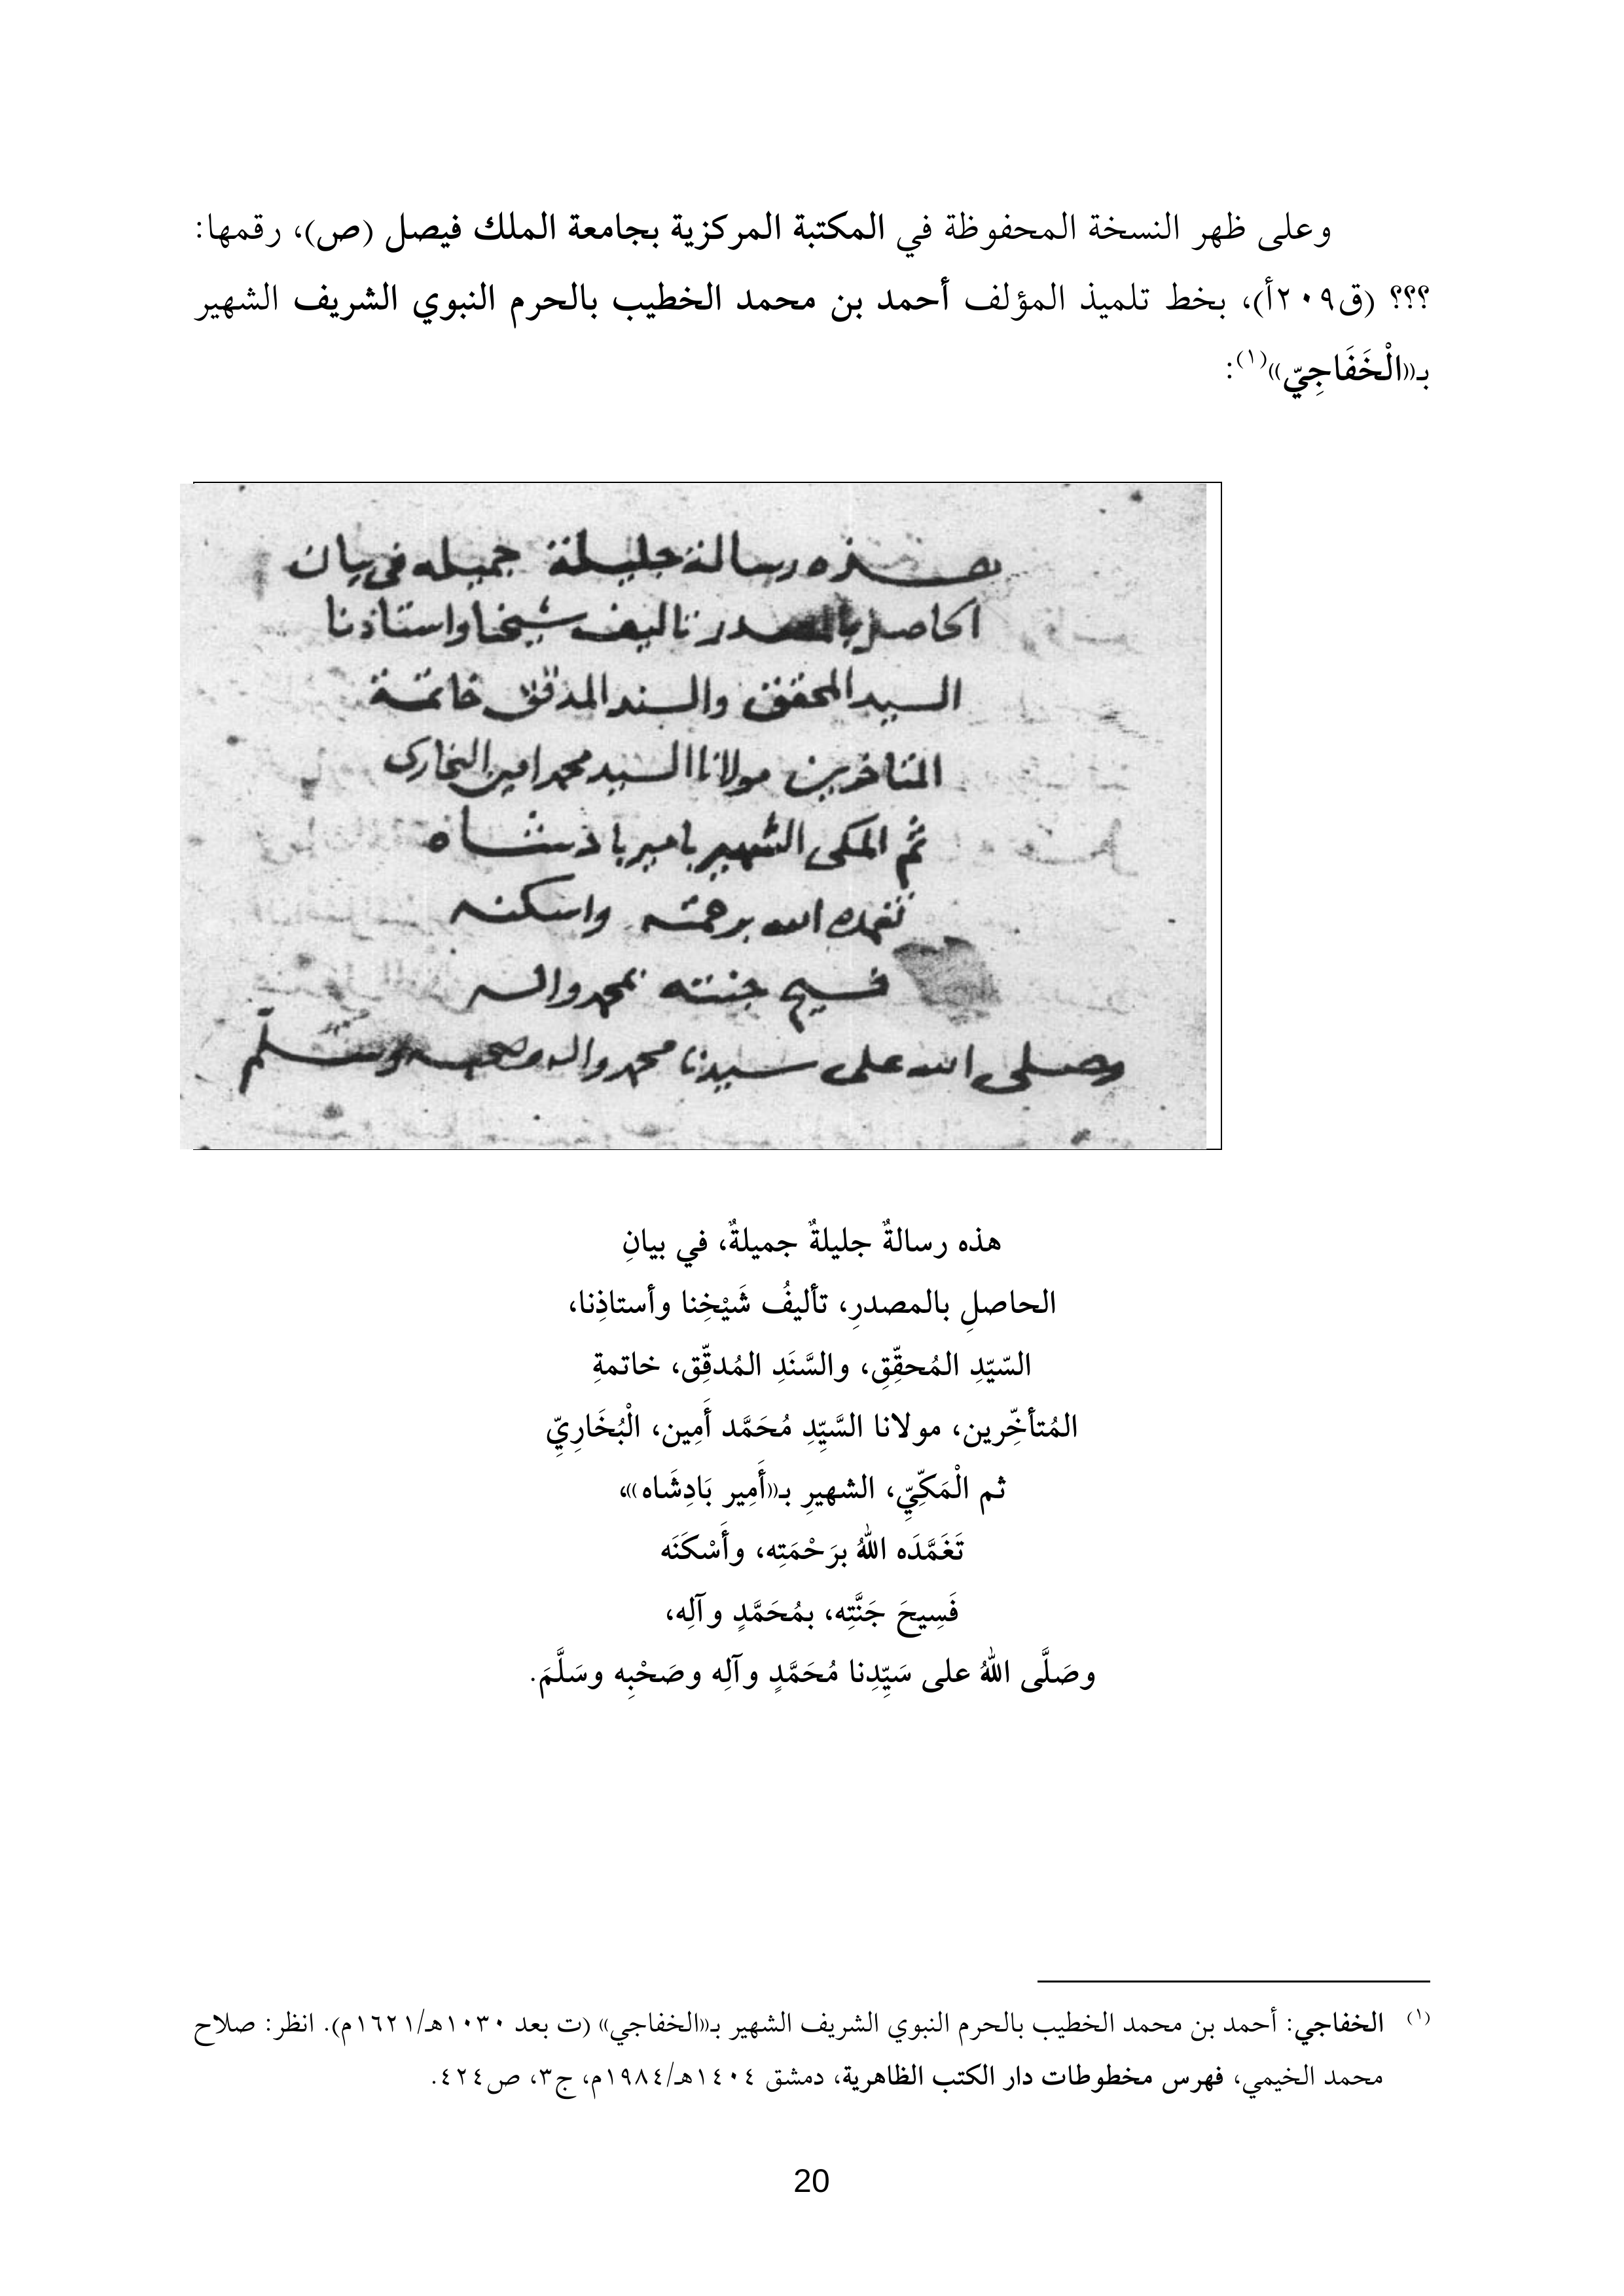 وعلى ظهر النسخة المحفوظة في المكتبة المركزية بجامعة الملك فيصل (ص)، رقمها:
؟؟؟ (ق٢٠٩أ)، بخط تلميذ المؤلف أحمد بن محمد الخطيب بالحرم النبوي الشريف الشهير
بـ«الْخَفَاجِيّ»(١):
هذه رسالة جليلة جميله في بيان
الحاصل بالمصدر تاليف شيخنا واستاذنا
السيد المحقق والسند المدقق خاتمة
المتاخرين مولانا السيد محمد امين البخارى
ثم المكى الشهير بامير باذشاه
تغمده الله برحمته واسكنه
فسيح جنته بمحمد واله
وصلى الله على سيدنا محمد واله وصحبه وسلّم
هذه رسالةٌ جليلةٌ جميلةٌ، في بيانِ
الحاصلِ بالمصدرِ، تأليفُ شَيْخِنا وأستاذِنا،
السّيّدِ المُحقِّقِ، والسَّنَدِ المُدقِّق، خاتمةِ
المُتأخِّرين، مولانا السَّيِّدِ مُحَمَّد أَمِين، الْبُخَارِيِّ
ثم الْمَكِّيِّ، الشهيرِ بـ«أَمِير بَادِشَاه»،
تَغَمَّدَه اللهُ برَحْمَتِه، وأَسْكَنَه
فَسِيحَ جَنَّتِه، بمُحَمَّدٍ وآلِه،
وصَلَّى اللهُ على سَيِّدِنا مُحَمَّدٍ وآلِه وصَحْبِه وسَلَّمَ.
(١) الخفاجي: أحمد بن محمد الخطيب بالحرم النبوي الشريف الشهير بـ«الخفاجي» (ت بعد ١٠٣٠هـ/١٦٢١م). انظر: صلاح
محمد الخيمي، فهرس مخطوطات دار الكتب الظاهرية، دمشق ١٤٠٤هـ/١٩٨٤م، ج٣، ص٤٢٤.
20